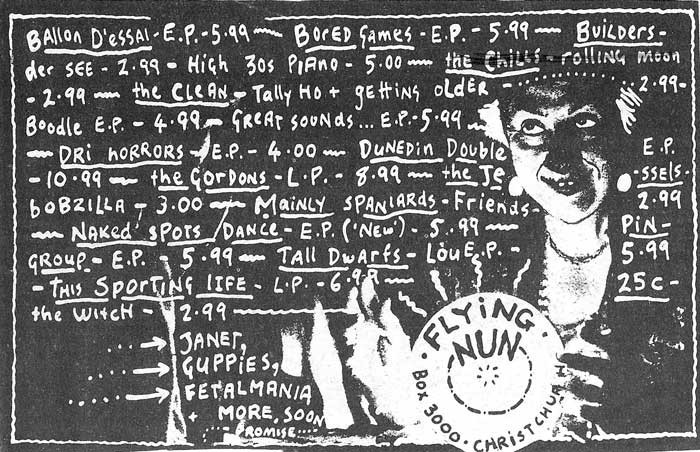 BALLON D'ESSAI - E.P. - 5.99 — BORED GAMES - E.P. - 5.99 — BUILDERS -
der SEE - 2.99 - HIGH 30s PIANO - 5.00 — the CHILLS - rolling moon
- 2.99 — the CLEAN - Tally Ho + getting OLDER - 2.99 -
Boodle E.P. - 4.99 — GREAT SOUNDS... E.P. - 5.99 —
— DRI HORRORS - E.P. - 4.00 — DUNEDIN DOUBLE E.P.
- 10.99 — the GORDONS - L.P. - 8.99 — the JESSELS -
boBZILLA - 3.00 — MAINLY SPANIARDS - Friends - 2.99
— NAKED SPOTS DANCE - E.P. ('NEW') - 5.99 — PIN -
GROUP - E.P. - 5.99 — TALL DWARFS - LOUE.P. - 5.99
- THIS SPORTING LIFE - L.P. - 6.99 — 25c -
the WITCH - 2.99
JANET,
GUPPIES,
FETALMANIA
+ MORE, SOON
PROMISE
FLYING
NUN
BOX 3000 · CHRISTCHURCH